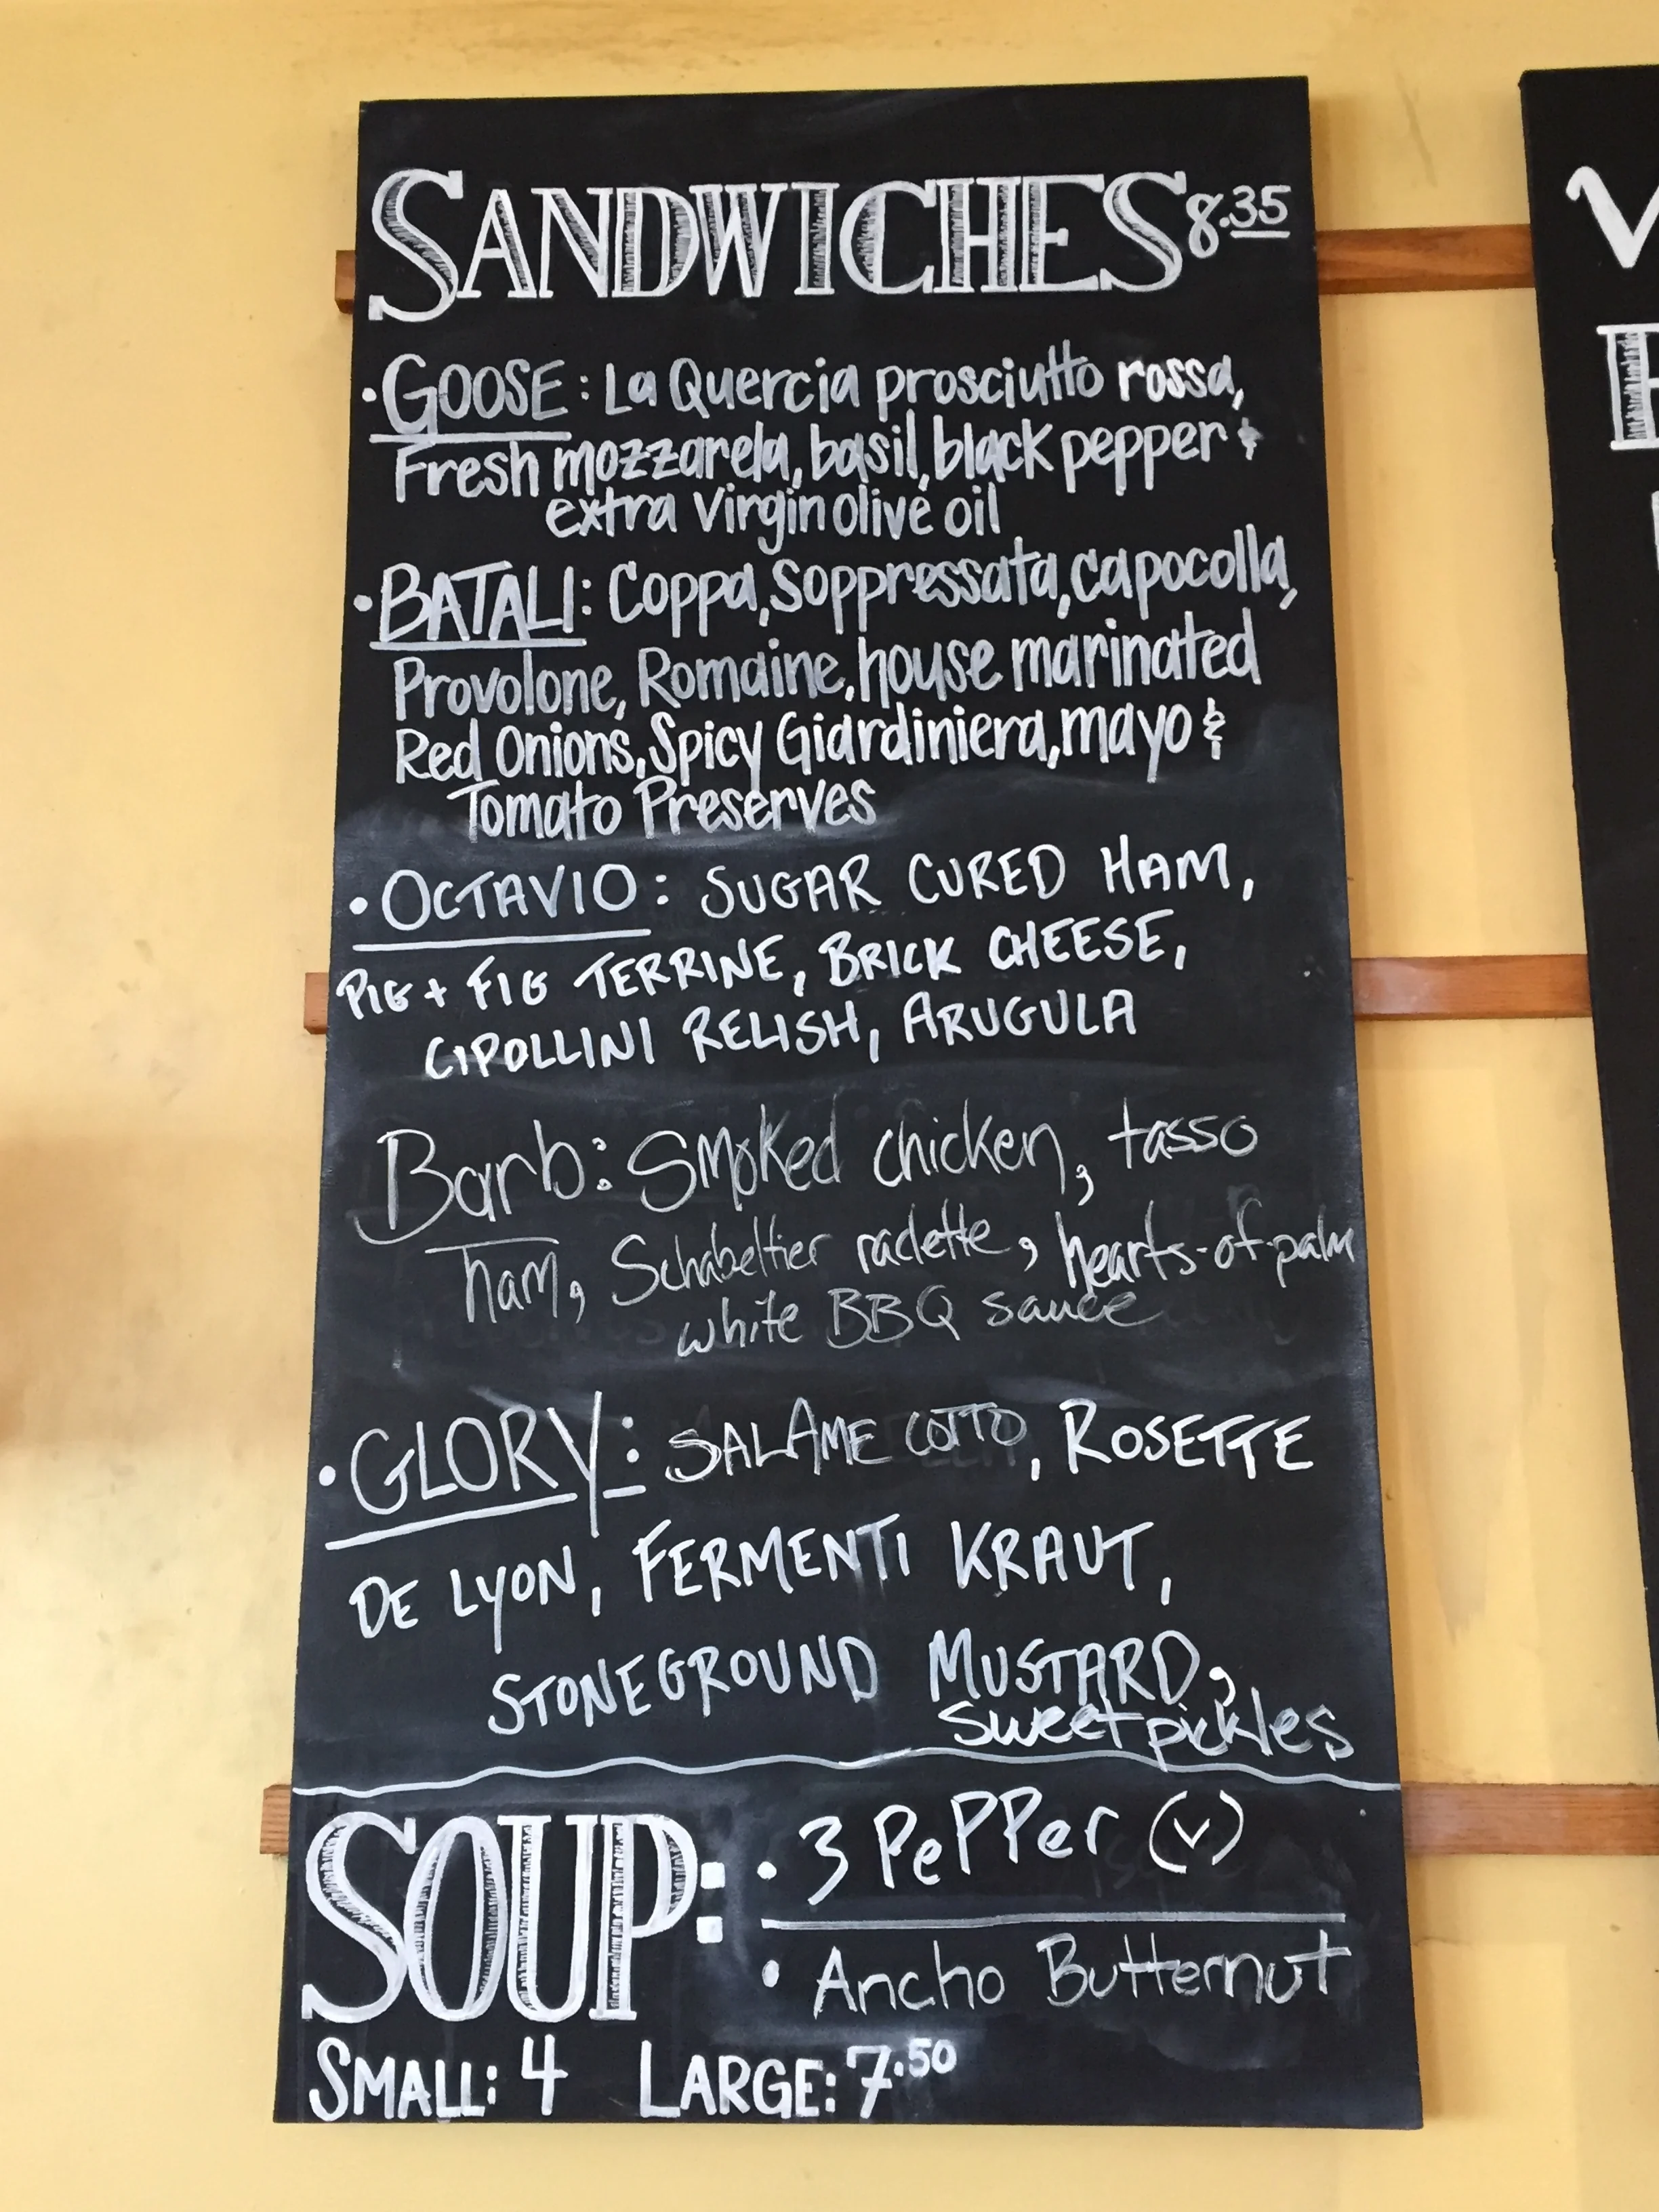 SANDWICHES 8.35
• GOOSE: La Quercia prosciutto rossa,
Fresh mozzarela, basil, black pepper &
extra virgin olive oil
• BATALI: Coppa, Soppressata, capocolla,
Provolone, Romaine, house marinated
Red Onions, Spicy Giardiniera, mayo &
Tomato Preserves
• OCTAVIO: SUGAR CURED HAM,
PIG + FIG TERRINE, BRICK CHEESE,
CIPOLLINI RELISH, ARUGULA
Barb: Smoked chicken, tasso
ham, Schabeltier raclette, hearts-of-palm
white BBQ sauce
• GLORY: SALAME COTTO, ROSETTE
DE LYON, FERMENTI KRAUT,
STONEGROUND MUSTARD,
sweet pickles
SOUP: • 3 PePPer (v)
• Ancho Butternut
SMALL: 4 LARGE: 7.50